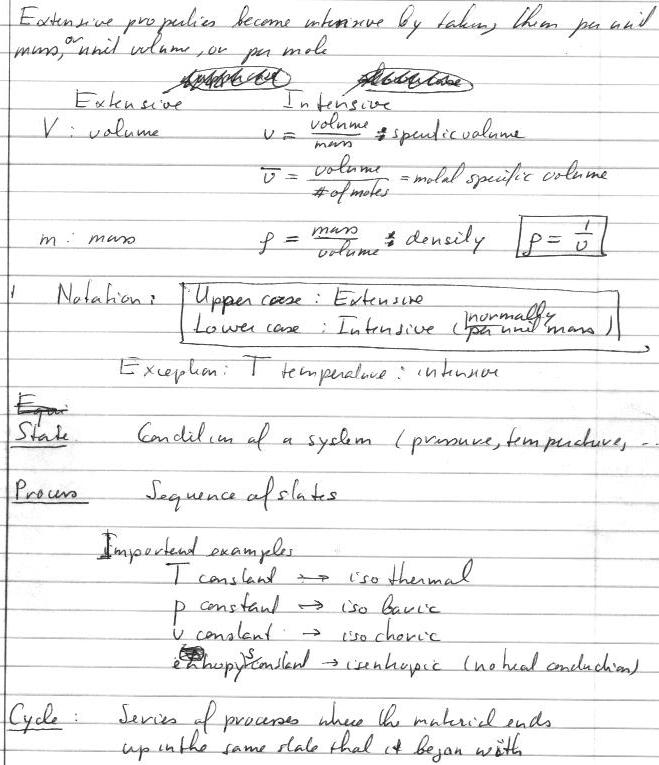 Extensive properties become intensive by taking them per unit
mass, or unit volume, or per mole
Extensive Intensive
V : volume v = volume / mass : specific volume
v̅ = volume / # of moles = molal specific volume
m : mass ρ = mass / volume : density ρ = 1 / v
Notation : Upper case : Extensive
Lower case : Intensive (normally per unit mass)
Exception : T temperature : intensive
Equi
State Condition of a system (pressure, temperature, ...
Process Sequence of states
Importend examples
T constant → iso thermal
p constant → iso baric
v constant → iso choric
entropy s constant → isentropic (no heat conduction)
Cycle : Series of processes where the material ends
up in the same state that it began with